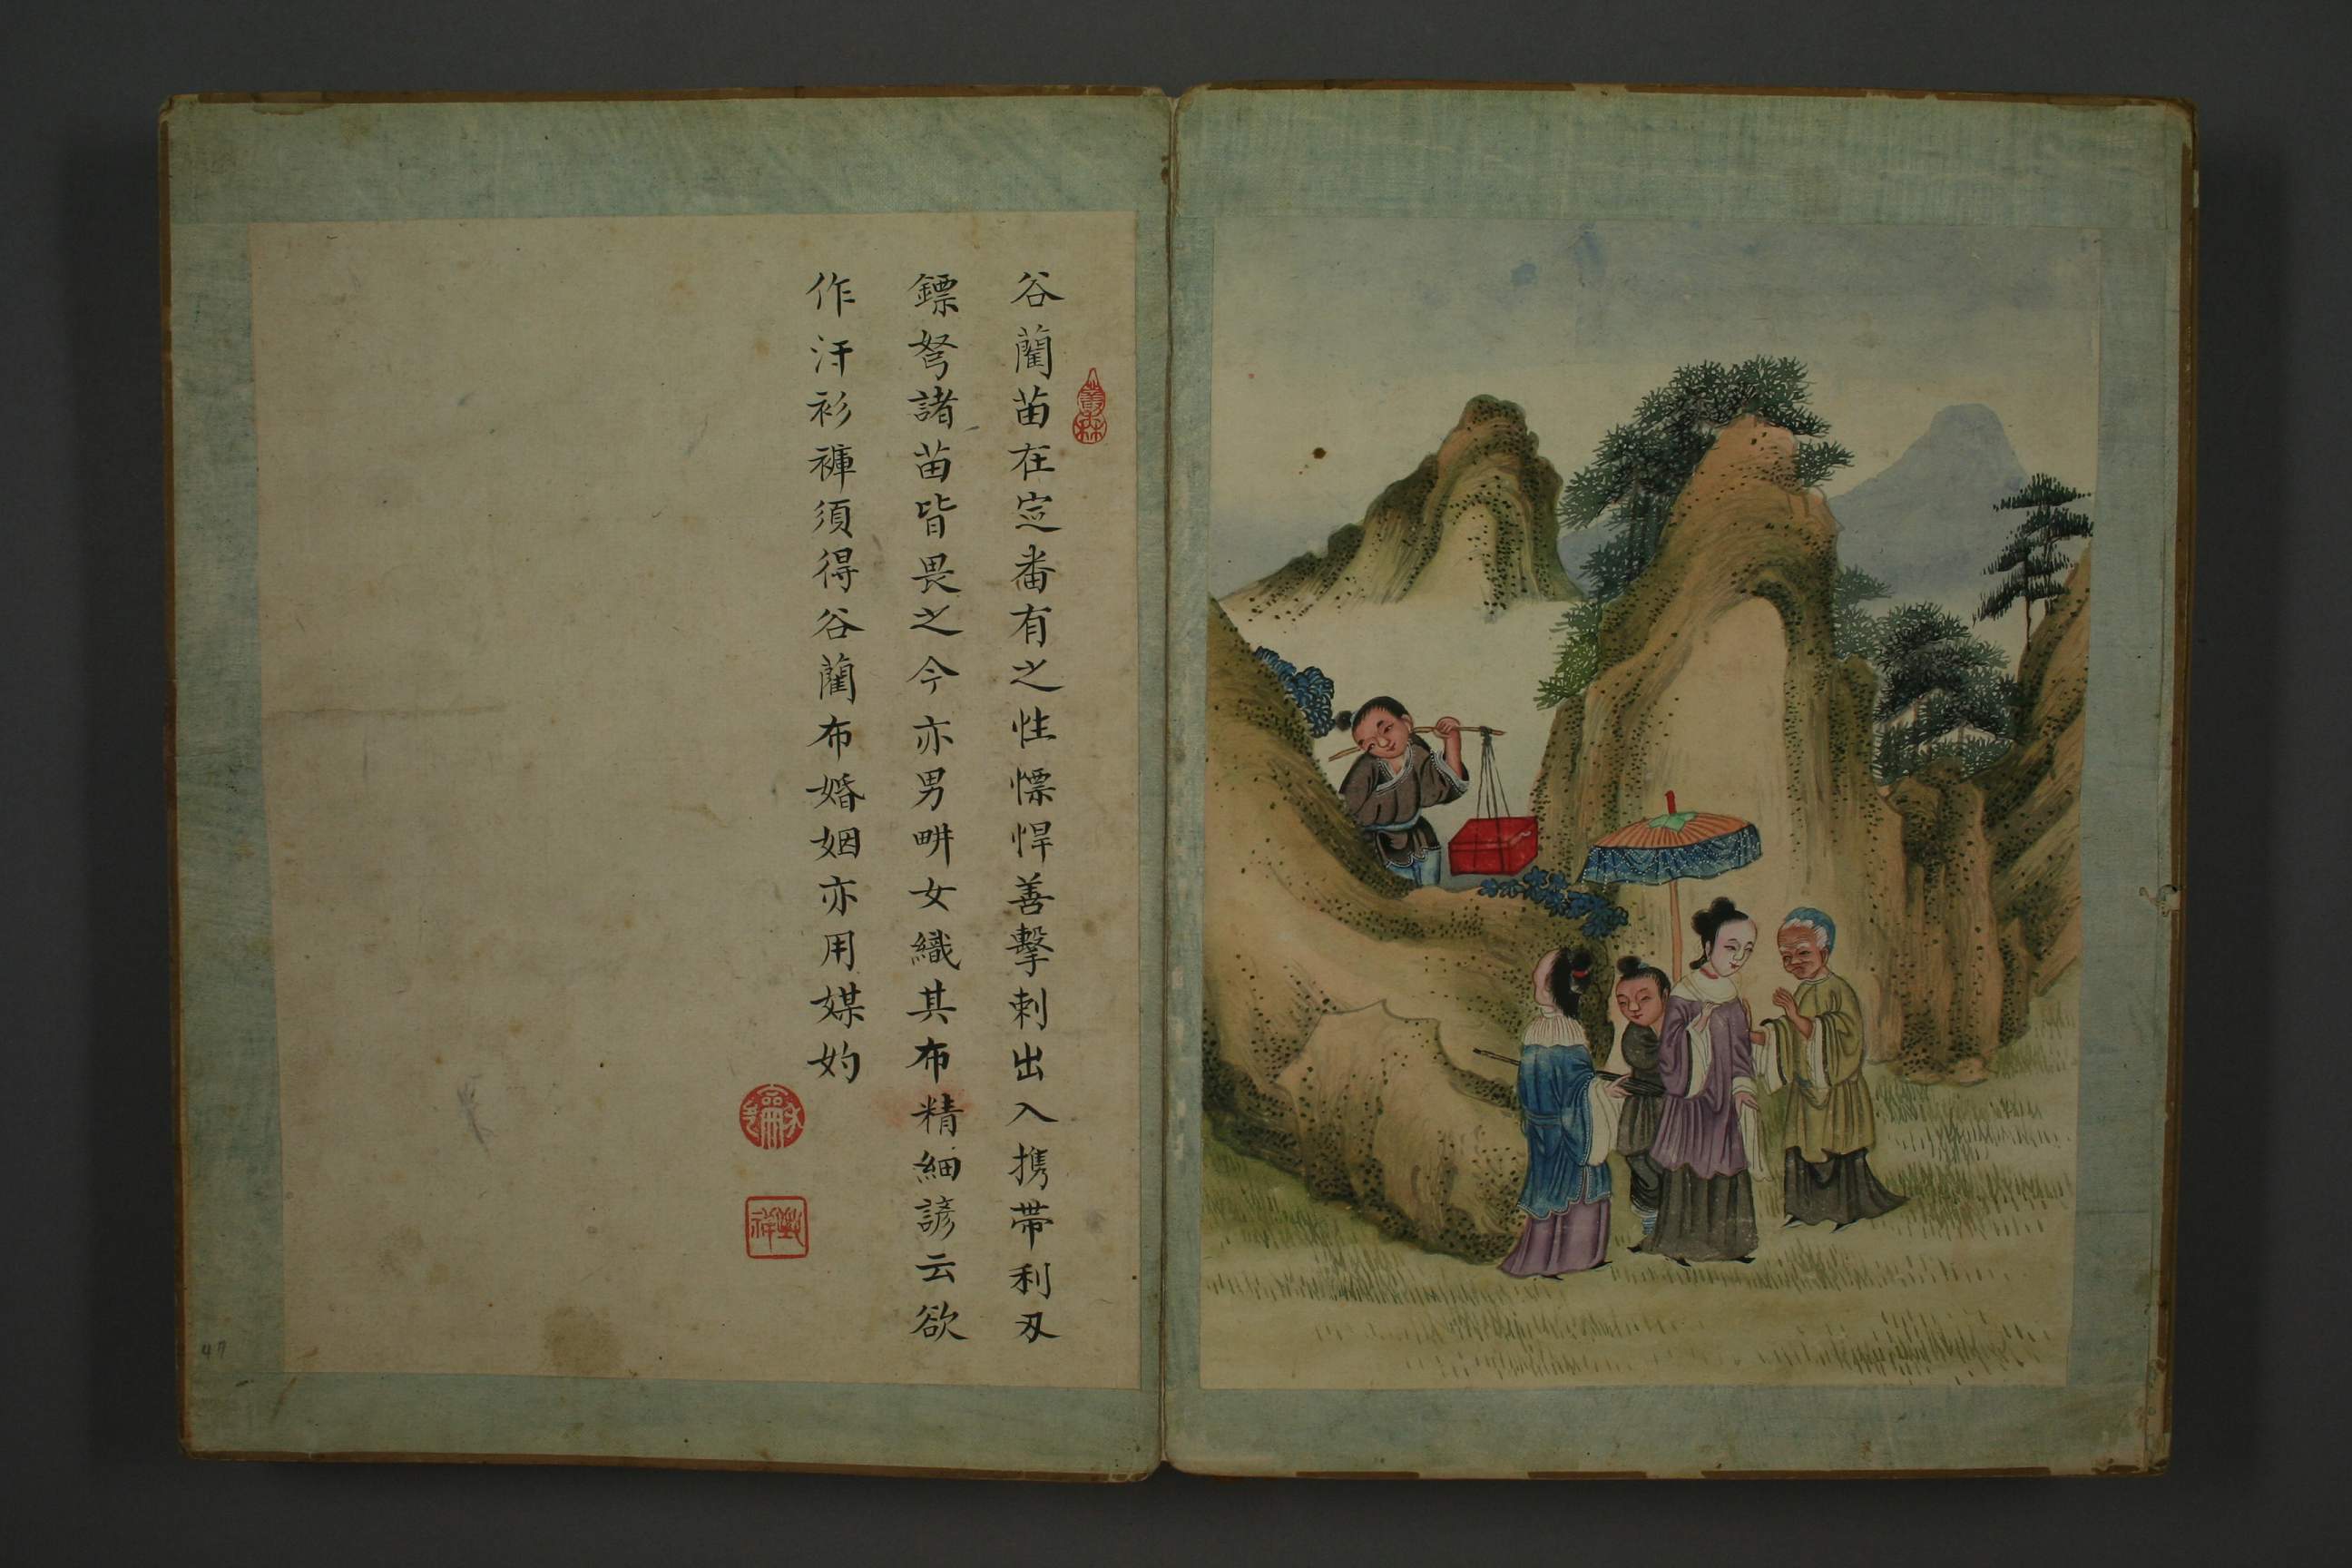 谷藺苗在定畨有之性慓悍善擊刺出入携帶利刄
鏢弩諸苗皆畏之今亦男畊女織其布精細諺云欲
作汗衫褲須得谷藺布婚姻亦用媒妁
47